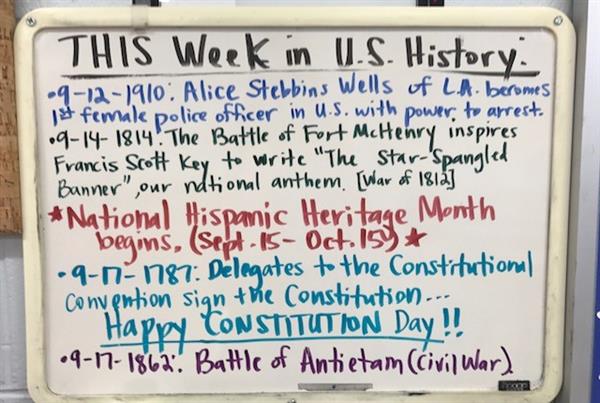 THIS Week in U.S. History:
• 9-12-1910: Alice Stebbins Wells of L.A. becomes
1st female police officer in U.S. with power to arrest.
• 9-14-1814: The Battle of Fort McHenry inspires
Francis Scott Key to write "The Star-Spangled
Banner", our national anthem. [War of 1812]
★ National Hispanic Heritage Month
begins. (Sept. 15 - Oct. 15) ★
• 9-17-1787: Delegates to the Constitutional
Convention sign the Constitution...
Happy CONSTITUTION Day!!
• 9-17-1862: Battle of Antietam (Civil War)